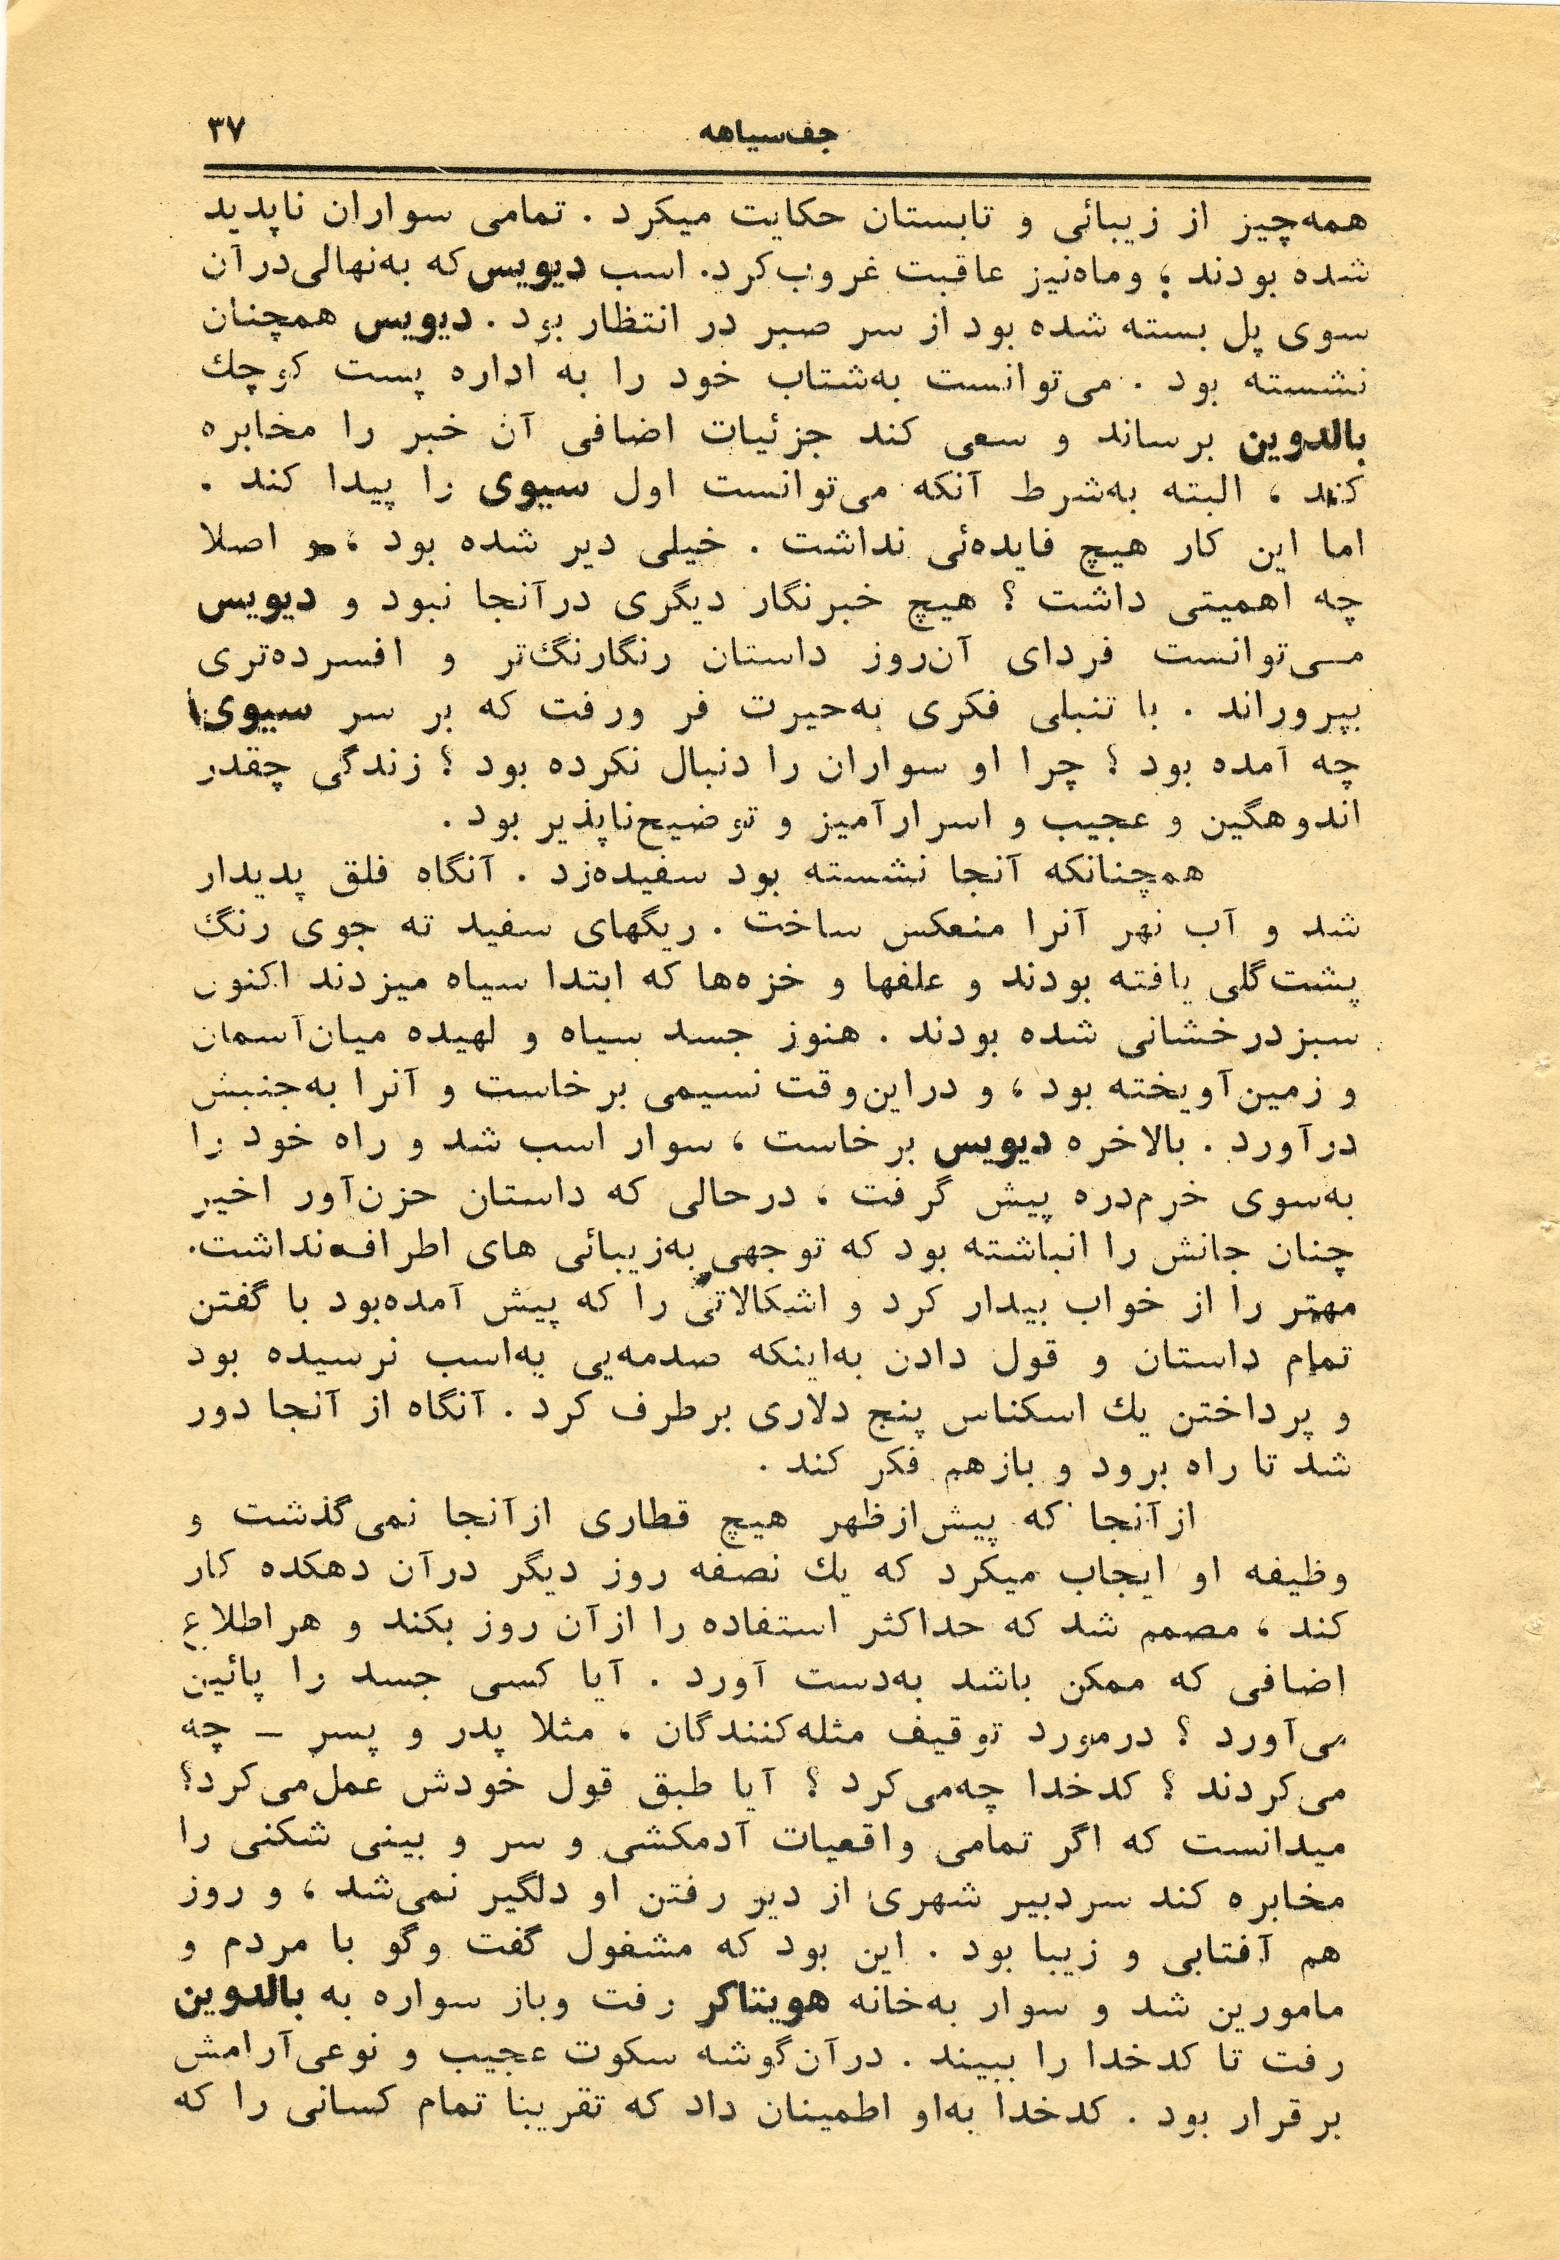 جف‌سیاهه ۳۷
همه‌چیز از زیبائی و تابستان حکایت میکرد . تمامی سواران ناپدید
شده بودند ؛ وماه‌نیز عاقبت غروب‌کرد. اسب دیویس‌که به‌نهالی‌درآن
سوی پل بسته شده بود از سر صبر در انتظار بود . دیویس همچنان
نشسته بود . می‌توانست به‌شتاب خود را به اداره پست کوچك
بالدوین برساند و سعی کند جزئیات اضافی آن خبر را مخابره
کند ، البته به‌شرط آنکه می‌توانست اول سیوی را پیدا کند .
اما این کار هیچ فایده‌ئی نداشت . خیلی دیر شده بود ، و اصلا
چه اهمیتی داشت ؟ هیچ خبرنگار دیگری درآنجا نبود و دیویس
می‌توانست فردای آن‌روز داستان رنگارنگ‌تر و افسرده‌تری
بپروراند . با تنبلی فکری به‌حیرت فر ورفت که بر سر سیوی
چه آمده بود ؟ چرا او سواران را دنبال نکرده بود ؟ زندگی چقدر
اندوهگین و عجیب و اسرارآمیز و توضیح‌ناپذیر بود .
همچنانکه آنجا نشسته بود سفیده‌زد . آنگاه فلق پدیدار
شد و آب نهر آنرا منعکس ساخت . ریگهای سفید ته جوی رنگ
پشت‌گلی یافته بودند و علفها و خزه‌ها که ابتدا سیاه میزدند اکنون
سبزدرخشانی شده بودند . هنوز جسد سیاه و لهیده میان‌آسمان
و زمین‌آویخته بود ، و دراین‌وقت نسیمی برخاست و آنرا به‌جنبش
درآورد . بالاخره دیویس برخاست ، سوار اسب شد و راه خود را
به‌سوی خرم‌دره پیش گرفت ، درحالی که داستان حزن‌آور اخیر
چنان جانش را انباشته بود که توجهی به‌زیبائی های اطراف نداشت.
مهتر را از خواب بیدار کرد و اشکالاتی را که پیش آمده‌بود با گفتن
تمام داستان و قول دادن به‌اینکه صدمه‌یی به‌اسب نرسیده بود
و پرداختن یك اسکناس پنج دلاری برطرف کرد . آنگاه از آنجا دور
شد تا راه برود و بازهم فکر کند .
ازآنجا که پیش‌ازظهر هیچ قطاری ازآنجا نمی‌گذشت و
وظیفه او ایجاب میکرد که یك نصفه روز دیگر درآن دهکده کار
کند ، مصمم شد که حداکثر استفاده را ازآن روز بکند و هراطلاع
اضافی که ممکن باشد به‌دست آورد . آیا کسی جسد را پائین
می‌آورد ؟ درمورد توقیف مثله‌کنندگان ، مثلا پدر و پسر – چه
می‌کردند ؟ کدخدا چه‌می‌کرد ؟ آیا طبق قول خودش عمل‌می‌کرد؟
میدانست که اگر تمامی واقعیات آدمکشی و سر و بینی شکنی را
مخابره کند سردبیر شهری از دیر رفتن او دلگیر نمی‌شد ، و روز
هم آفتابی و زیبا بود . این بود که مشغول گفت وگو با مردم و
مامورین شد و سوار به‌خانه هویتاکر رفت وباز سواره به بالدوین
رفت تا کدخدا را ببیند . درآن‌گوشه سکوت عجیب و نوعی‌آرامش
برقرار بود . کدخدا به‌او اطمینان داد که تقریبا تمام کسانی را که